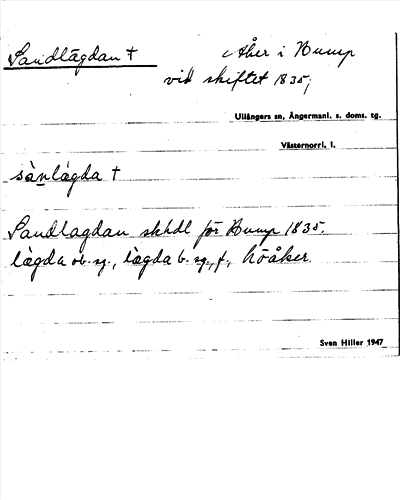 Sandlägdan † Åker i Bump
vid skiftet 1835;
Ullångers sn, Ångermanl. s. doms. tg.
Västernorrl. l.
sànlágda †
Sandlagdan skhdl för Bump 1835.
lägda ob. sg., lägda b. sg., f., höåker.
Sven Hiller 1947